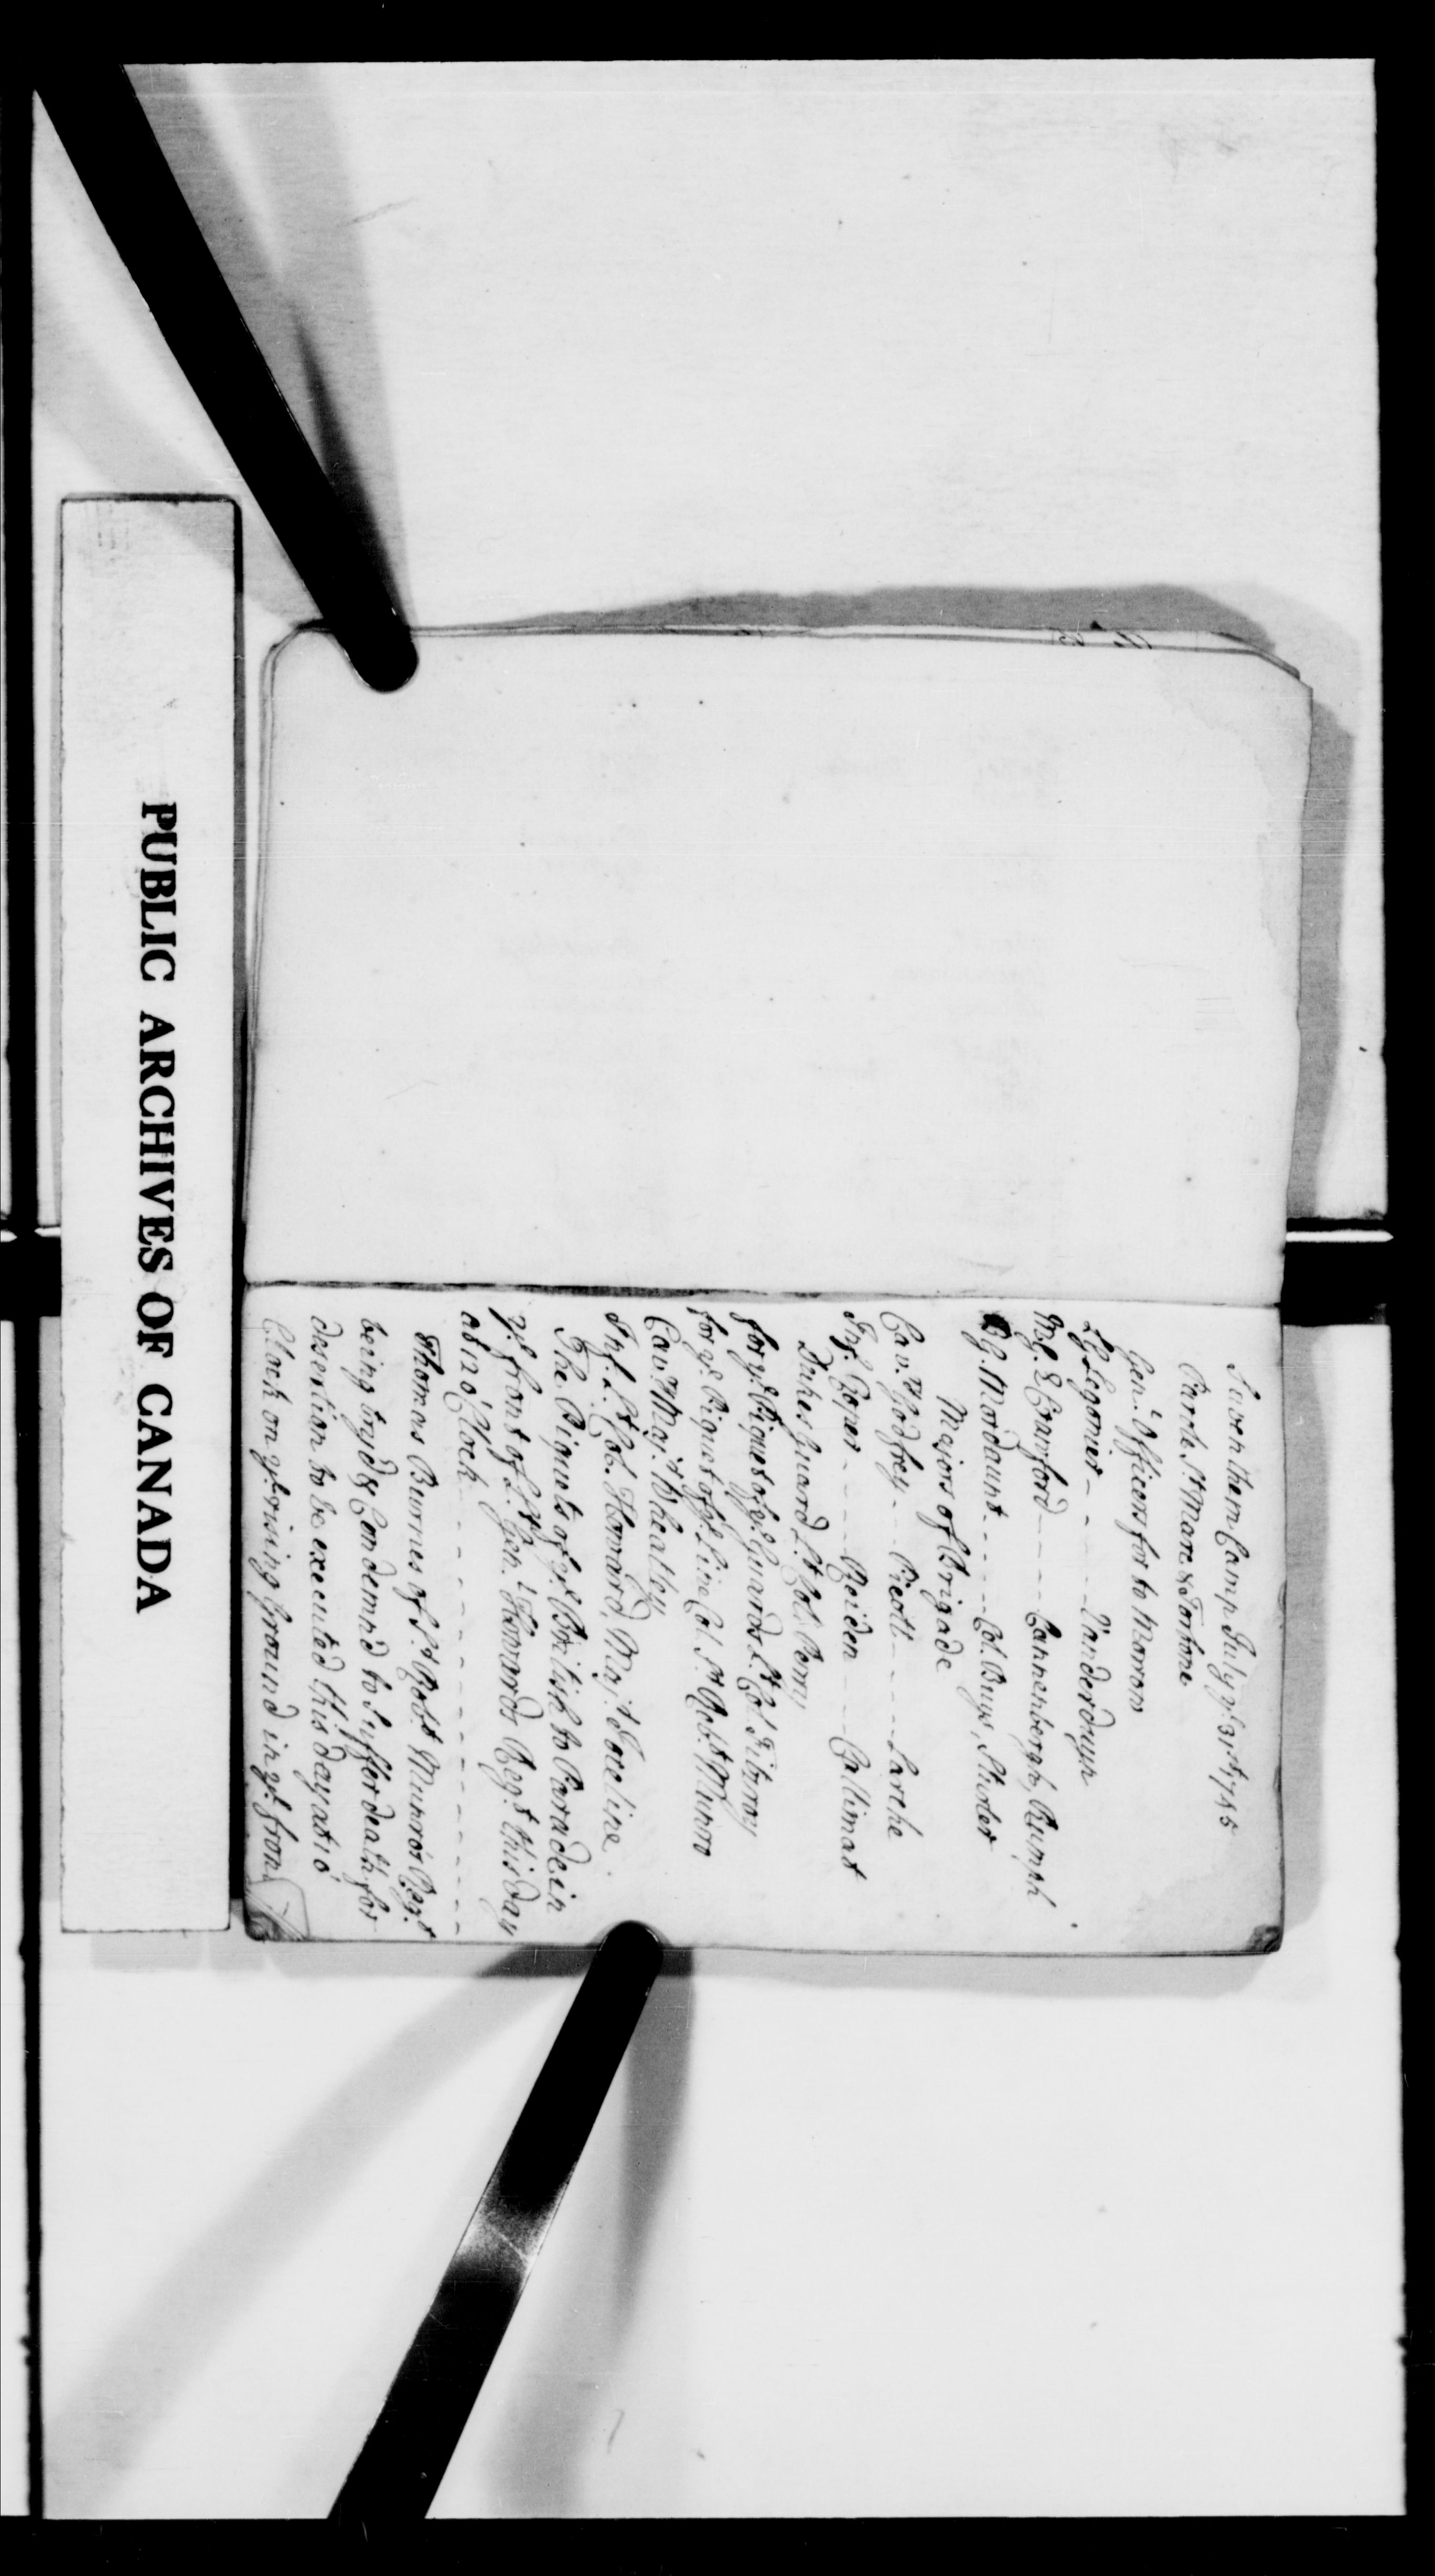 Camp July ye. 31st. 1745
Parole St. Mare & Tortone
Gen.l Officers for to Morrow
L G Legonier - - - - Vanderduyn
M. G. Crawford - - - Cannenbergh, Rumph
Bg. Mordaunt - - - - Col. Buys, Sturler
Majors of Brigade
Cav. Godfrey - - Picott - - - - Larche
Inf. Roper - - - - Reiden - - Callimat
Dukes Guard Lt. Col. Perry
for ye. Piquet of ye. Guards Lt. Col. Fitzroy
for ye. Piquet of ye. Line Col. Sr. Rob.t Munro
Cav. Maj.r Wheatley
Inf. Lt. Col. Howard, Maj.r Joceline
The Piquets of ye. British to Parade in
ye. front of Lt. Gen.l Howards Reg.t this day
at 12 o'Clock - - - - - - - - - - -
Thomas Burnes of Sr. Rob.t Munro's Reg.t
being try'd & Condemn'd to Suffer death for
desertian to be executed this day at 10
Clock on ye. rising Ground in ye. fron
PUBLIC ARCHIVES OF CANADA